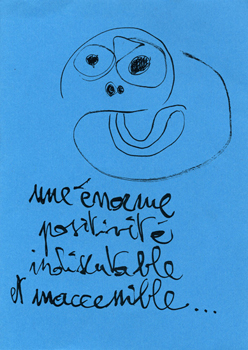 une énorme
positivité
indiscutable
et inaccessible...